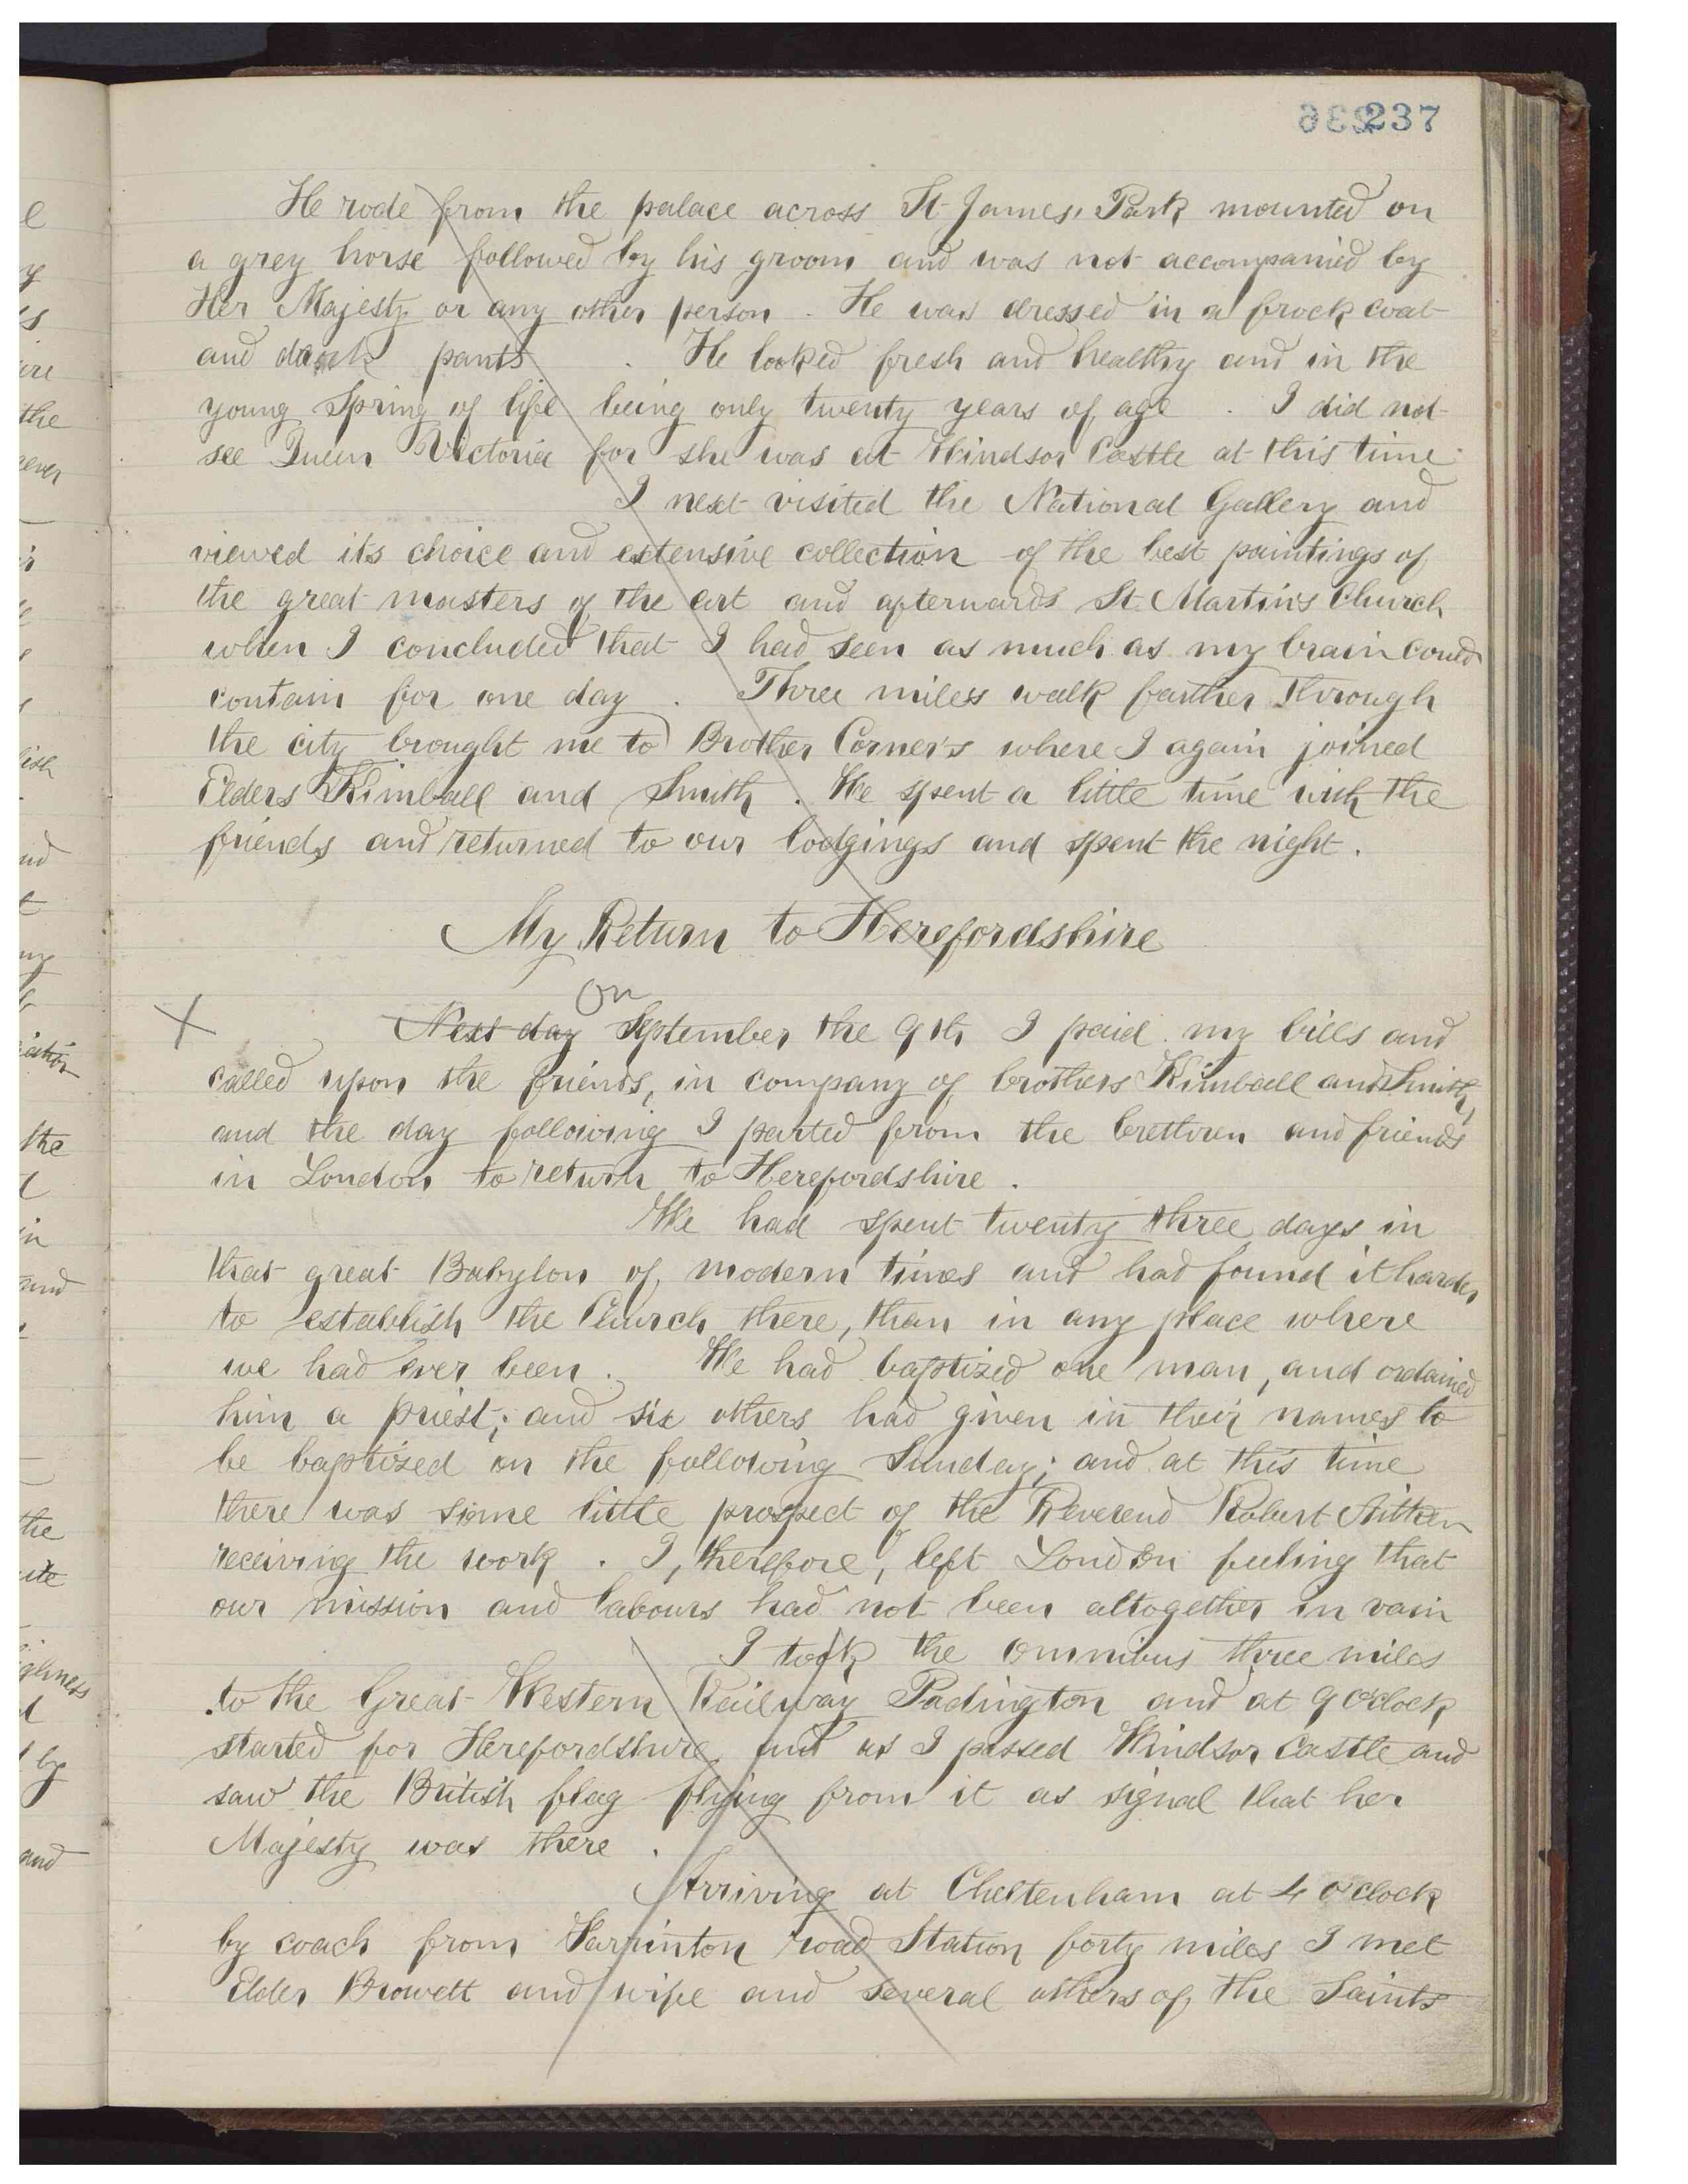 237
He rode from the palace across St James, Park mounted on
a grey horse followed by his groom and was not accompanied by
Her Majesty or any other person. He was dressed in a frock coat
and dark pants . He looked fresh and healthy and in the
young Spring of life being only twenty years of age . I did not
see Queen Victoria for she was at Windsor Castle at this time.
I next visited the National Gallery and
viewed its choice and extensive collection of the best paintings of
the great masters of the art and afterwards St. Martin's Church
when I concluded that I had seen as much as my brain could
contain for one day . Three miles walk farther through
the city brought me to Brother Corner's where I again joined
Elders Kimball and Smith . We spent a little time with the
friends and returned to our lodgings and spent the night.
My Return to Herefordshire
On
Next day September the 9th I paid my bills and
called upon the friends, in company of brothers Kimball and Smith,
and the day following I parted from the brethren and friends
in London to return to Herefordshire .
We had spent twenty three days in
that great Babylon of modern times and had found it harder
to establish the Church there, than in any place where
we had ever been . We had baptized one man, and ordained
him a priest; and six others had given in their names to
be baptised on the following Sunday; and at this time
there was some little prospect of the Reverend Robert Aitken
receiving the work . I, therefore, left London feeling that
our mission and labours had not been altogether in vain
I took the omnibus three miles
to the Great Western Railway Padington and at 9 o'clock
started for Herefordshire and as I passed Windsor Castle and
saw the British flag flying from it as signal that her
Majesty was there .
Arriving at Cheltenham at 4 o'clock
by coach from Farrinton road Station forty miles I met
Elder Browett and wife and several others of the Saints